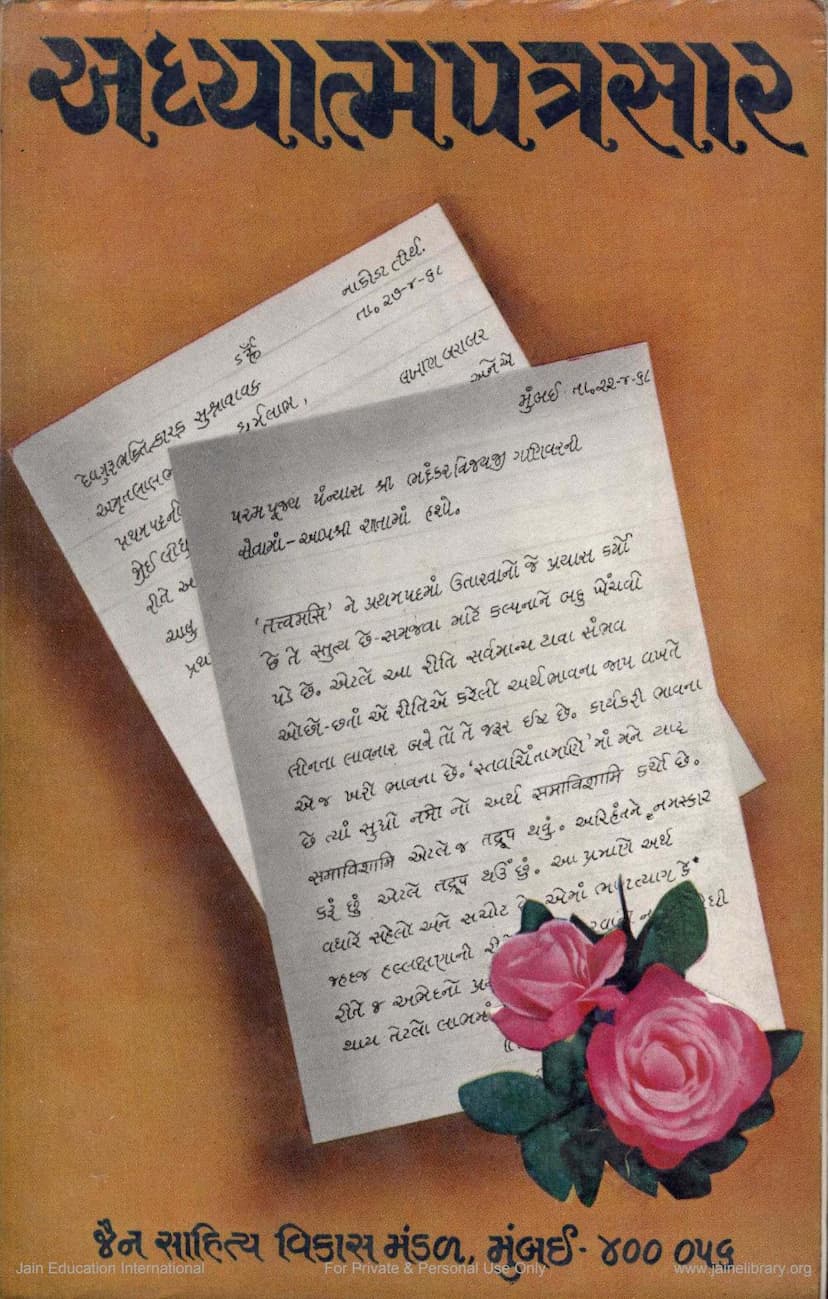 અધ્યાત્મપત્રસાર
નાકોડા તીર્થ.
તા. ૨૭-૪-૬૮
ૐ હ્રીઁ
દેવગુરુભક્તિકારક સુશ્રાવક
અમૃતલાલ
ધર્મલાભ,
લખાણ બરાબર
અને એ
પ્રથમપદની
જોઈ લીધ
રીતે અ
આવુ
પ્રથ
મુંબઈ તા.૨૨-૪-૬૮
પરમપૂજ્ય પંન્યાસ શ્રી ભદ્રંકરવિજયજી ગણિવરની
સેવામાં - આપશ્રી શાતામાં હશો.
'તત્ત્વમસિ' ને પ્રથમપદમાં ઉતારવાનો જે પ્રયાસ કર્યો
છે તે સ્તુત્ય છે - સમજવા માટે કલ્પનાને બહુ ખેંચવી
પડે છે. એટલે આ રીતિ સર્વમાન્ય થવા સંભવ
ઓછો - છતાં એ રીતિએ કરેલી અર્થભાવના જાપ વખતે
લીનતા લાવનાર બને તો તે જરૂર ઈષ્ટ છે. કાર્યકરી ભાવના
એ જ ખરી ભાવના છે. 'સ્તવચિંતામણિ' માં મને યાદ
છે ત્યાં સુધી નમો નો અર્થ સમાવિશામિ કર્યો છે.
સમાવિશામિ એટલે જ તદ્રૂપ થવું. અરિહંતને નમસ્કાર
કરૂં છું એટલે તદ્રૂપ થઉં છું. આ પ્રમાણે અર્થ
વધારે સહેલો અને સચોટ છે. એમાં ભાગત્યાગ કે
જહદજહલ્લક્ષણાની રીતે
રીતે જ અભેદનો પ્ર
થાય તેટલો લાભમાં
જૈન સાહિત્ય વિકાસ મંડળ, મુંબઈ - ૪૦૦ ૦૫૬
Jain Education International For Private & Personal Use Only www.jainelibrary.org